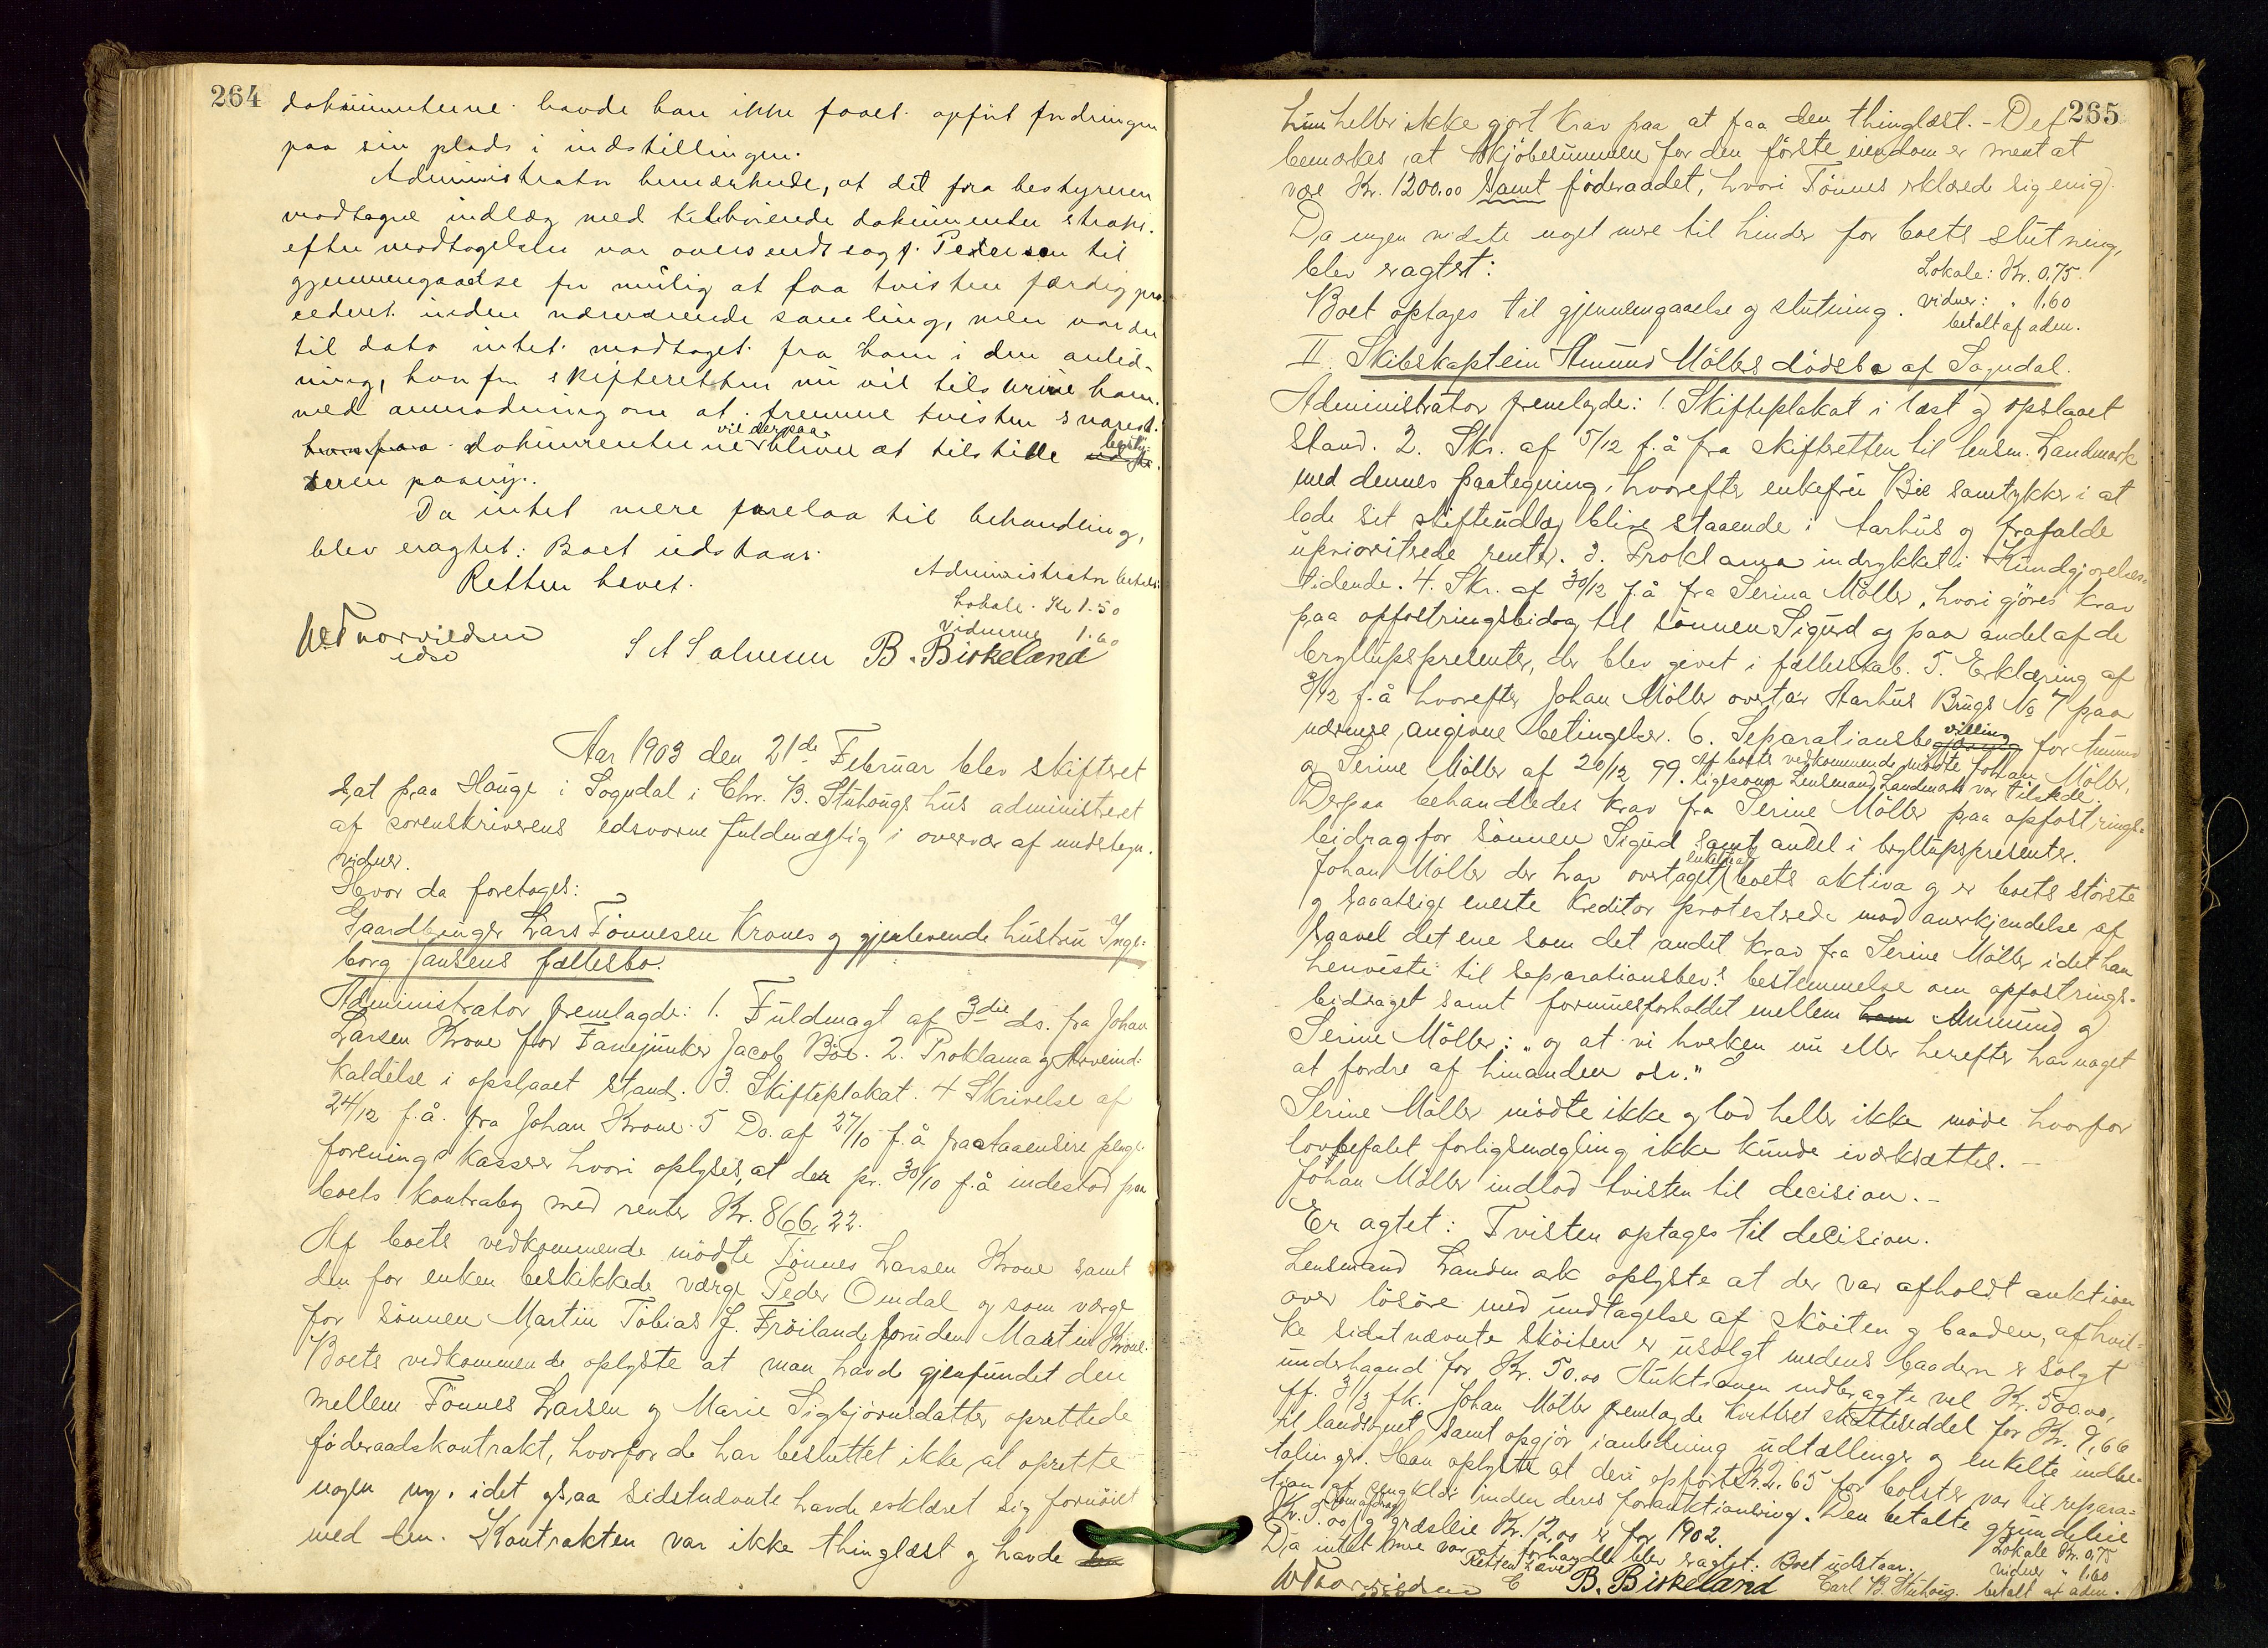 264
dokumenterne havde han ikke faaet opført fordringen
paa sin plads i indstillingen.
Administrator bemærkede, at det fra bestyreren
modtagne indlæg med tilhørende dokumenter straks
efter modtagelsen var oversendt sagf. Pedersen til
gjennemgaaelse for mulig at faa tvisten færdig pro-
cederet inden nærværende samling, men var der
til dato intet modtaget fra ham i den anled-
ning, hvorfor skifteretten nu vil tilskrive ham
med anmodning om at fremme tvisten snarest.
dokumenterne vil derpaa blive at tilstille besty-
reren paany.
Da intet mere forelaa til behandling,
blev eragtet: Boet udstaar.
Retten hævet.
Administrator betalte:
Lokale Kr 1.50
Vidnerne 1.60
W Thorvildsen
edsv
S A Salvesen B. Birkeland
Aar 1903 den 21de Februar blev skifteret
sat paa Hauge i Sogndal i Chr. B. Stuhougs hus administreret
af sorenskriverens edsvorne fuldmægtig i overvær af undertegn.
vidner.
Hvor da foretoges:
Gaardbruger Lars Tønnesen Krones og gjenlevende hustru Inge-
borg Jansens fællesbo.
Administrator fremlagde: 1. Fuldmagt af 3die ds. fra Johan
Larsen Krone for Fanejunker Jacob Böe. 2. Proklama og Arveind-
kaldelse i opslaaet stand. 3. Skifteplakat. 4 Skrivelse af
24/12 f.å. fra Johan Krone. 5 Do. af 27/10 f.å fra
forenings kasserer hvori oplyses, at der pr. 30/10 f.å indestod paa
boets kontrabog med renter Kr. 866,22.
Af boets vedkommende mödte Tönnes Larsen Krone samt
den for enken beskikkede værge Peder Omdal og som værge
for sönnen Martin Tobias J. Fröiland foruden Martin Krone.
Boets vedkommende oplyste at man havde gjenfundet den
mellem Tönnes Larsen og Marie Sigbjörnsdatter oprettede
föderaadskontrakt, hvorfor de har besluttet ikke at oprette
nogen ny, idet ogsaa sidstnævnte havde erklæret sig fornöiet
med den. Kontrakten var ikke thinglæst og havde
265
hun heller ikke gjort krav paa at faa den thinglæst. - Det
bemærkes, at skjöbesummen for den förste eiendom er ment at
være Kr. 1200.00 samt föderaadet, hvori Tönnes erklærede sig enig.
Da ingen vidste noget mere til hinder for boets slutning,
blev eragtet:
Boet optages til gjennemgaaelse og slutning.
Lokale: Kr. 0,75.
vidner: " 1,60
betalt af adm.
II. Skibskaptein Amund Möllers dödsbo af Sogndal.
Administrator fremlagde: 1. Skifteplakat i læst og opslaaet
stand. 2. Skr. af 5/12 f.å fra skifteretten til lensm. Landmark
med dennes paategning, hvorefter enkefru Bie samtykker i at
lade sit skifteudlæg blive staaende i Aarhus og frafalde
uprioriterede renter. 3. Proklama indrykket i Kundgjörelses-
tidende. 4. Skr. af 30/12 f.å fra Serina Möller, hvori gjöres krav
paa opfostringsbidrag til sönnen Sigurd og paa andel af de
bryllupspresenter, der blev givet i fællesskab. 5. Erklæring af
3/12 f.å hvorefter Johan Möller overtar Aarhus Brugs No 7 paa
nærmere, angivne betingelser. 6. Separationsbevilling for Amund
og Serine Möller af 20/12 99. Af boets vedkommende mödte Johan Möller,
ligesom Lensmand Landmark var tilstede.
Derpaa behandledes krav fra Serine Möller paa opfostrings-
bidrag for sönnen Sigurd samt andel i bryllupspresenter.
Johan Möller der har overtaget boets aktiva og er boets störste
og saaatsige eneste kreditor protesterede mod anerkjendelse af
saavel det ene som det andet krav fra Serine Möller idet han
henviste til separationsbev.s bestemmelse om opfostrings-
bidraget samt formuesforholdet mellem Amund og
Serine Möller: "og at vi hverken nu eller herefter har noget
at fordre af hinanden osv."
Serine Möller mödte ikke og lod heller ikke möde hvorfor
lovbefalet forligsmægling ikke kunde iværksættes. -
Johan Möller indlod tvisten til decision. -
Er agtet: Tvisten optages til decision.
Lensmand Landmark oplyste at der var afholdt auktion
over lösöre med undtagelse af sköiten og baaden, af hvil-
ke sidstnævnte sköiten er usolgt medens baaden er solgt
underhaand for Kr. 50.00 Auktionen indbragte vel Kr. 500.00,
ff. 3/3 fk. Johan Möller fremlagde kvitteret skatteseddel for Kr. 9,66
til landsognet samt opgjör i anledning udtællinger og enkelte indbe-
talinger. Han oplyste at den opförte Kr. 2,65 for bolster var til repara-
tion af sengklær inden deres forauktionering. Den betalte grundleie
Kr. 5.00 og græsleie Kr. 12,00 er for 1902.
Da intet mere var at forhandle blev eragtet: Boet udstaar.
Retten hævet
Lokale Kr. 0,75
vidner " 1,60
betalt af adm.
W Thorvildsen
B. Birkeland Carl B. Stuhoug.